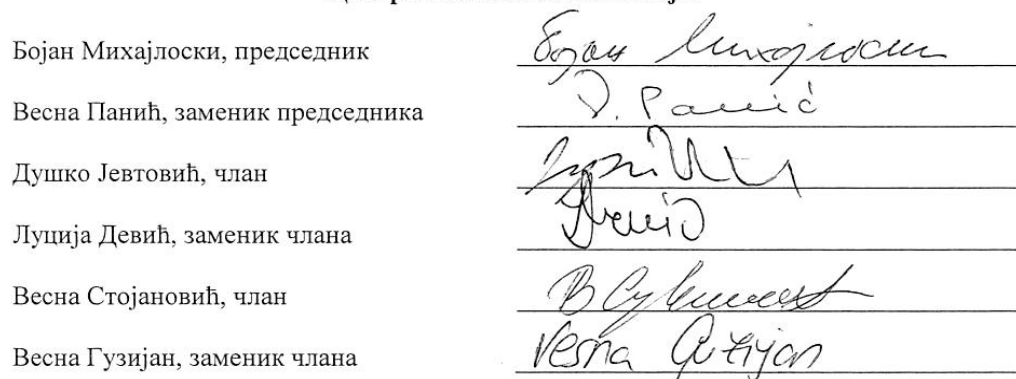 Бојан Михајлоски, председник Бојан Михајлоски
Весна Панић, заменик председника V. Panić
Душко Јевтовић, члан
Луција Девић, заменик члана
Весна Стојановић, члан
Весна Гузијан, заменик члана Vesna Guzijan